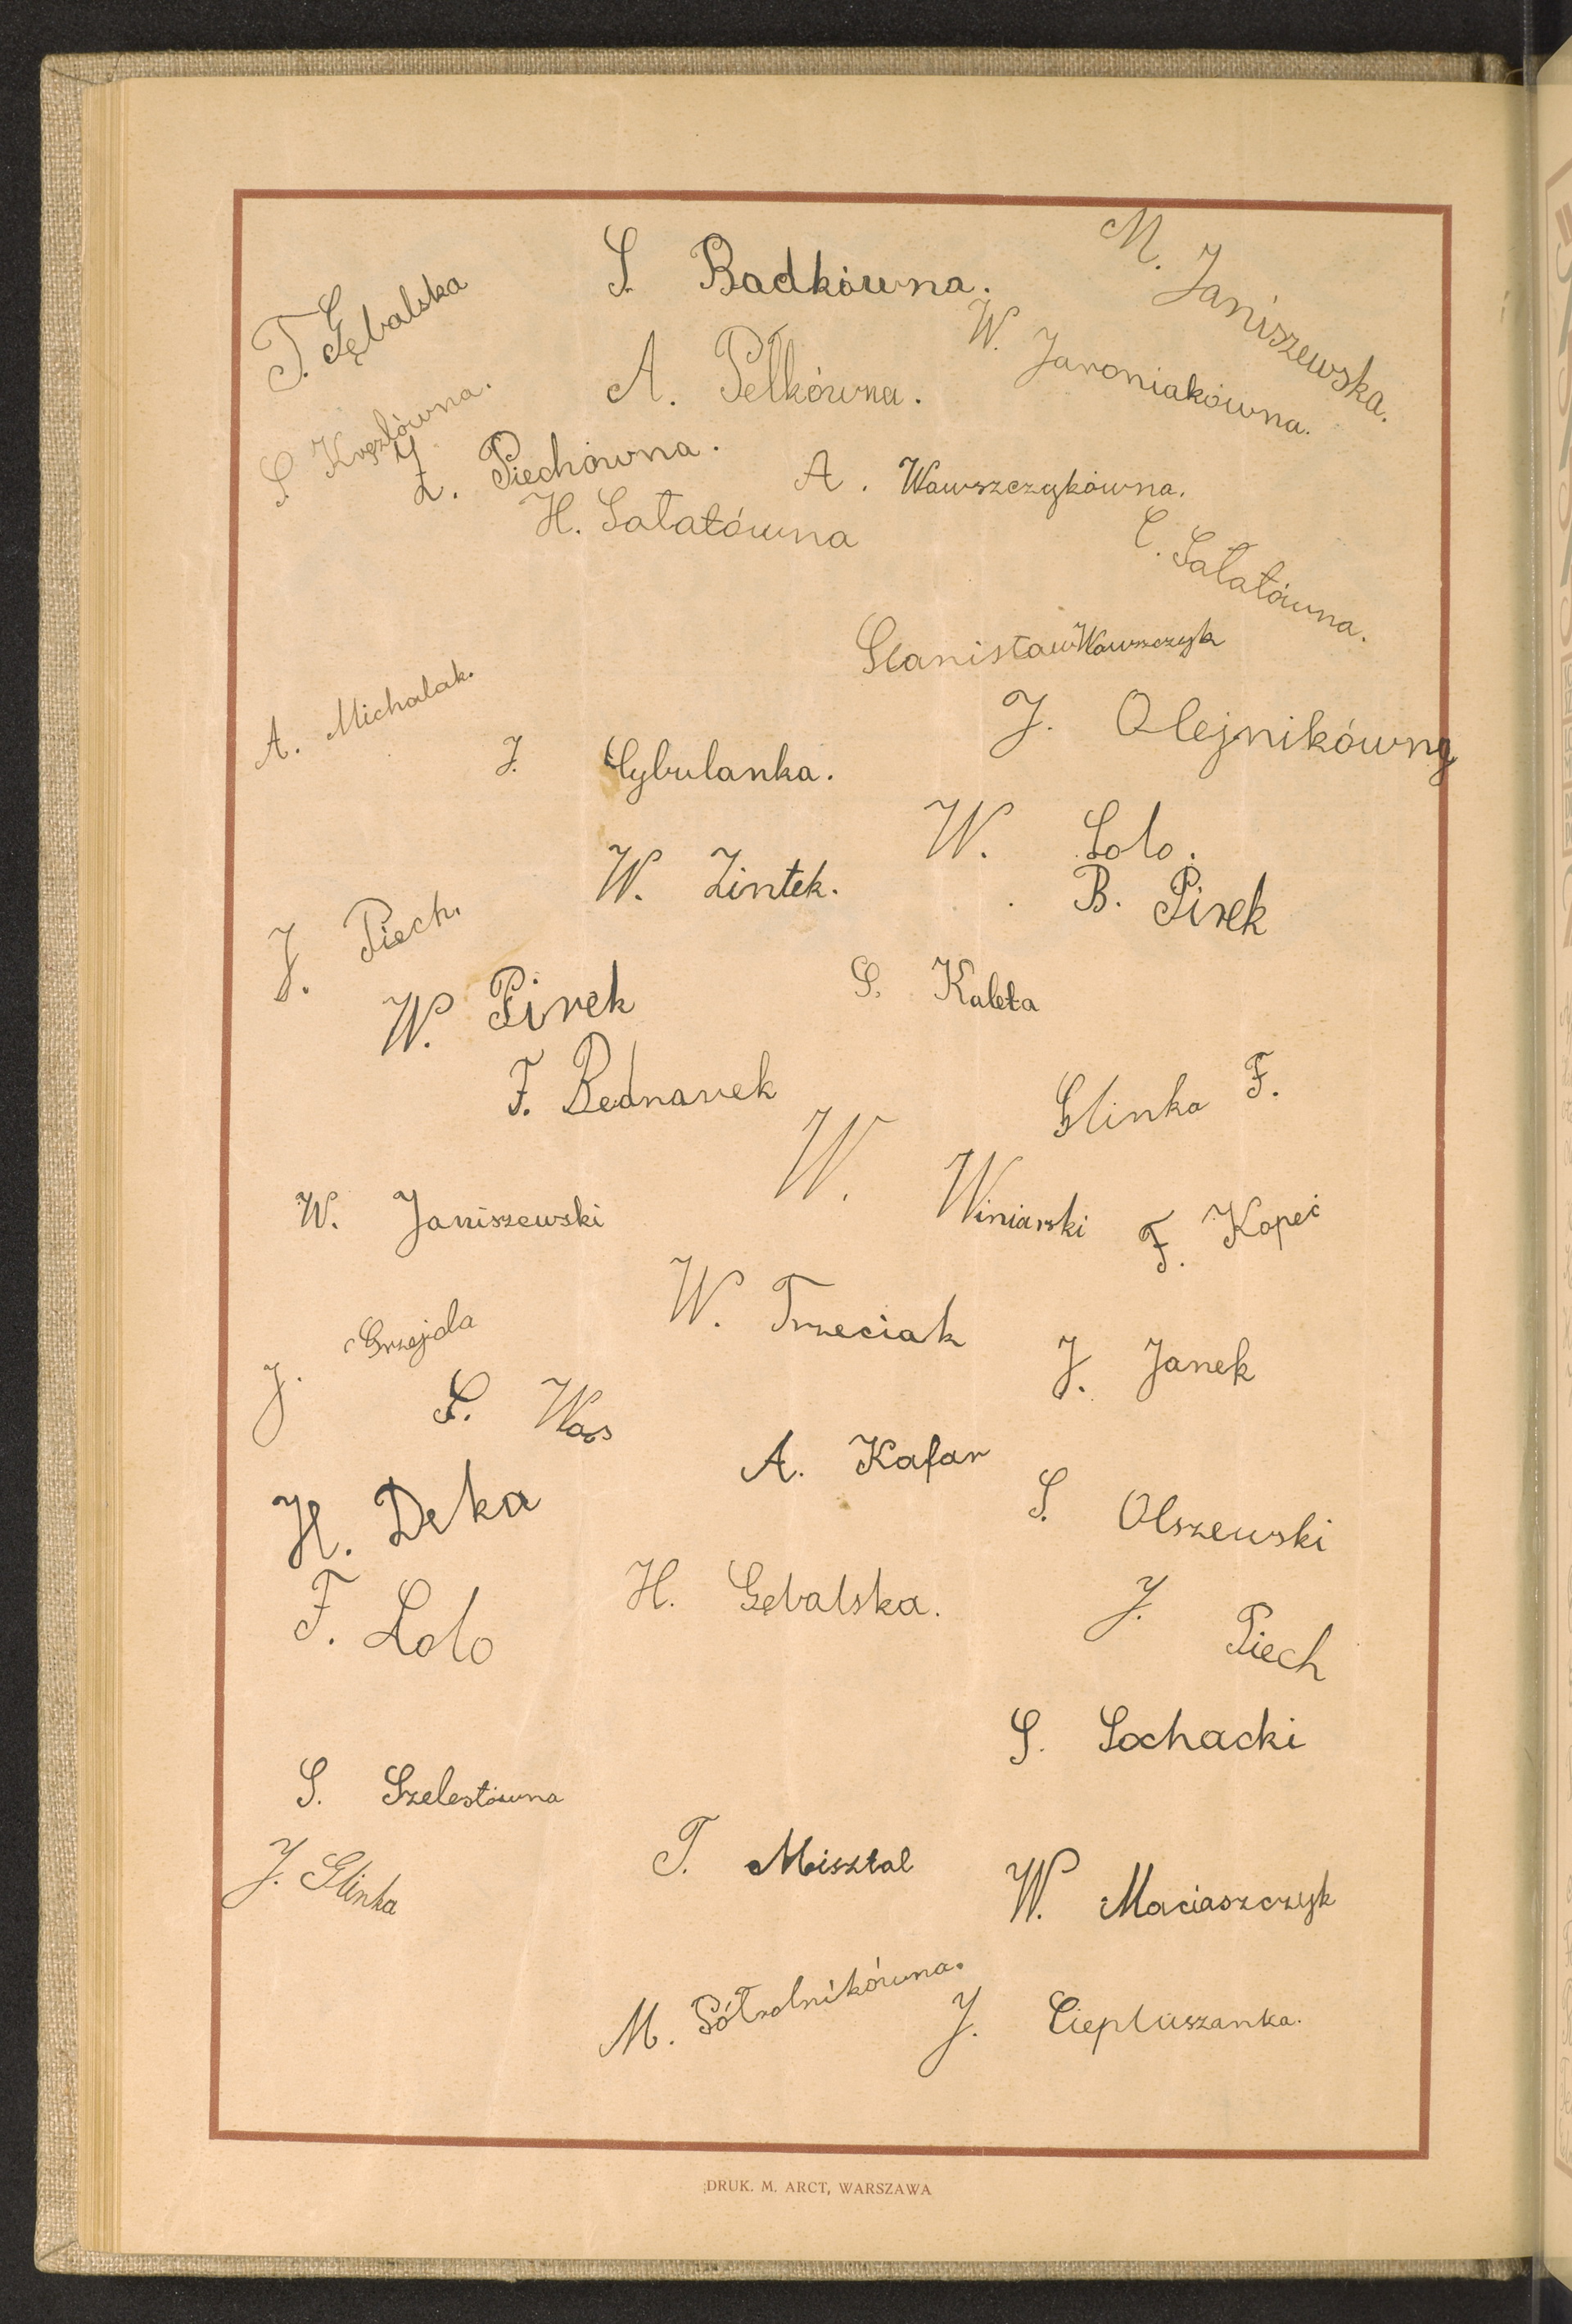 S. Badkówna.
M. Janiszewska.
T. Gębalska
W. Jaroniakówna.
A. Pełkówna.
S. Kręzłówna.
Z. Piechówna.
A. Wawszczykówna.
H. Sałatówna
C. Sałatówna.
Stanisław Wawszczyk
A. Michalak.
J. Olejnikówny
J. Cybulanka.
W. Lolo.
W. Zintek.
B. Pirek
J. Piech.
S. Kaleta
W. Pirek
F. Bednarek
Glinka F.
W. Winiarski
W. Janiszewski
F. Kopeć
W. Trzeciak
J. Grzejda
J. Janek
S. Wąs
A. Kafar
H. Deka
S. Olszewski
H. Gębalska.
F. Lolo
J. Piech
S. Sochacki
S. Szelestówna
T. Misztal
J. Glinka
W. Maciaszczyk
M. Półrolnikówna.
J. Ciepluszanka.
DRUK. M. ARCT, WARSZAWA